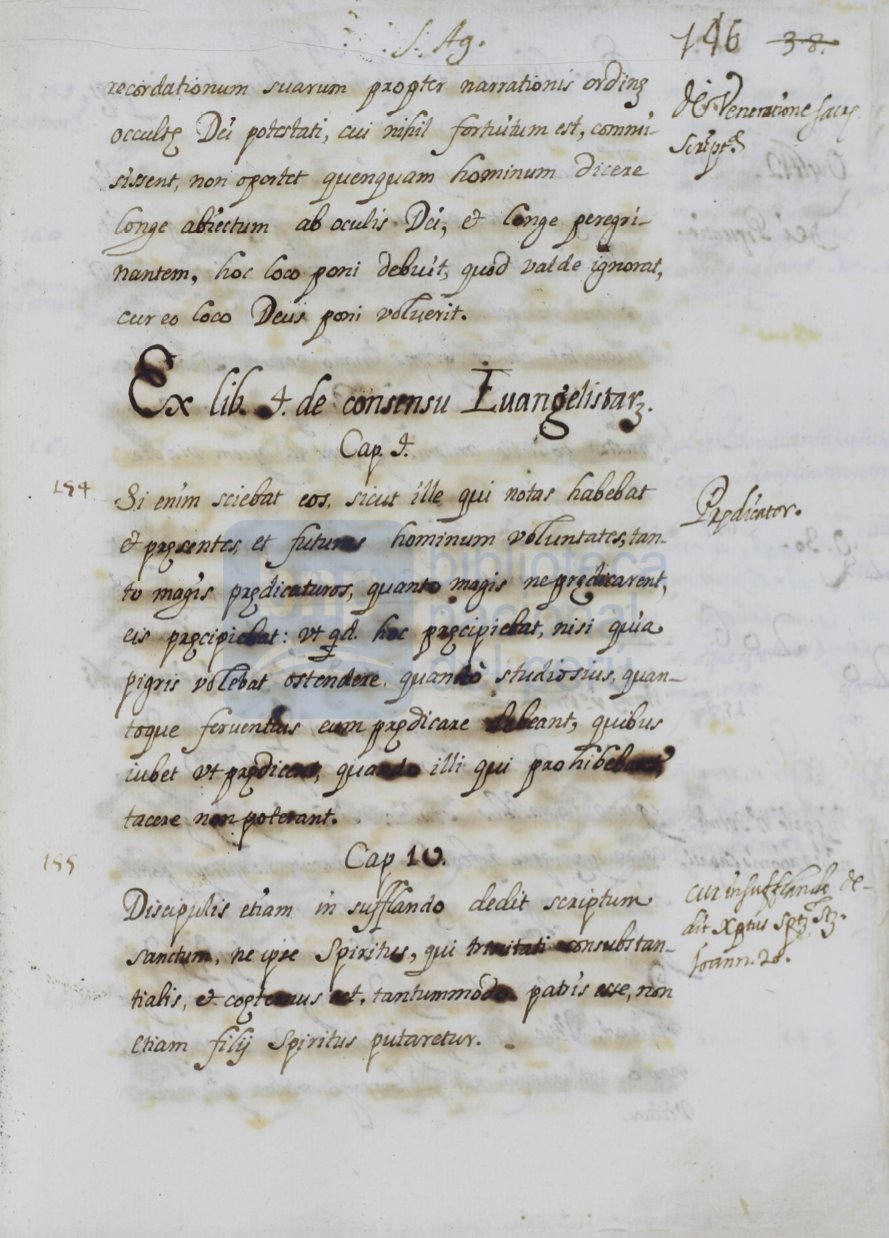 S. Ag.
146 38.
recordationum suarum propter narrationis ordinẽ
occultę Dei potestati, cui nihil fortuitum est, commi-
sissent, non oportet quenquam hominum dicere
longe abiectum ab oculis Dei, et longe peregri-
nantem, hoc loco poni debuit, quod valde ignorat,
cur eo loco Deus poni voluerit.
de Veneratione sacrę
script.
Ex lib. 4. de consensu Euangelistarꝫ.
Cap. 4.
154
Si enim sciebat eos, sicut ille qui notas habebat
et pręsentes, et futuras hominum voluntates, tan-
to magis prędicaturos, quanto magis ne prędicarent,
eis pręcipiebat: vt qd. hoc pręcipiebat, nisi quia
pigris volebat ostendere, quanto studiosius, quan-
toque feruentius eum prędicare debeant, quibus
iubet vt prędicent, quando illi qui prohibebantur
tacere non poterant.
Prędicator.
Cap 10.
155
Discipulis etiam in sufflando dedit scriptum
sanctum, ne ipse Spiritus, qui trinitati consubstan-
tialis, et coęternus est, tantummodo patris esse, non
etiam filij Spiritus putaretur.
cur insufflando de-
dit Xptus
Joann. 20.
biblioteca
nacional
del perú